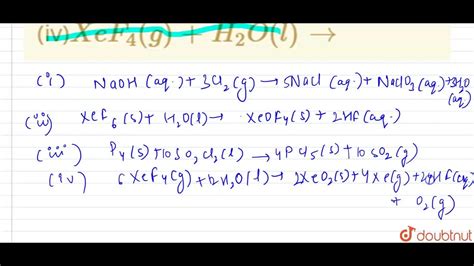 (iv) XeF₄(g) + H₂O(l) →
(i) NaOH (aq.) + 3Cl₂(g) → 5NaCl (aq.) + NaClO₃(aq.) + 3H₂O (aq)
(ii) XeF₆(s) + H₂O(l) → XeOF₄(s) + 2HF(aq.)
(iii) P₄(s) + 10SO₂Cl₂(l) → 4PCl₅(s) + 10SO₂(g)
(iv) 6XeF₄(g) + 12H₂O(l) → 2XeO₃(s) + 4Xe(g) + 24HF(aq)
+ O₂(g)
doubtnut